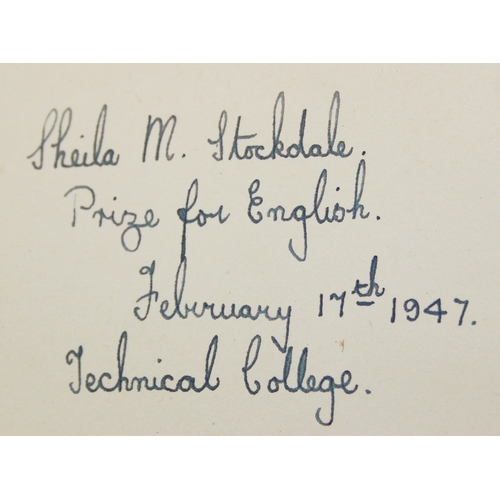 Sheila M. Stockdale.
Prize for English.
February 17th 1947.
Technical College.